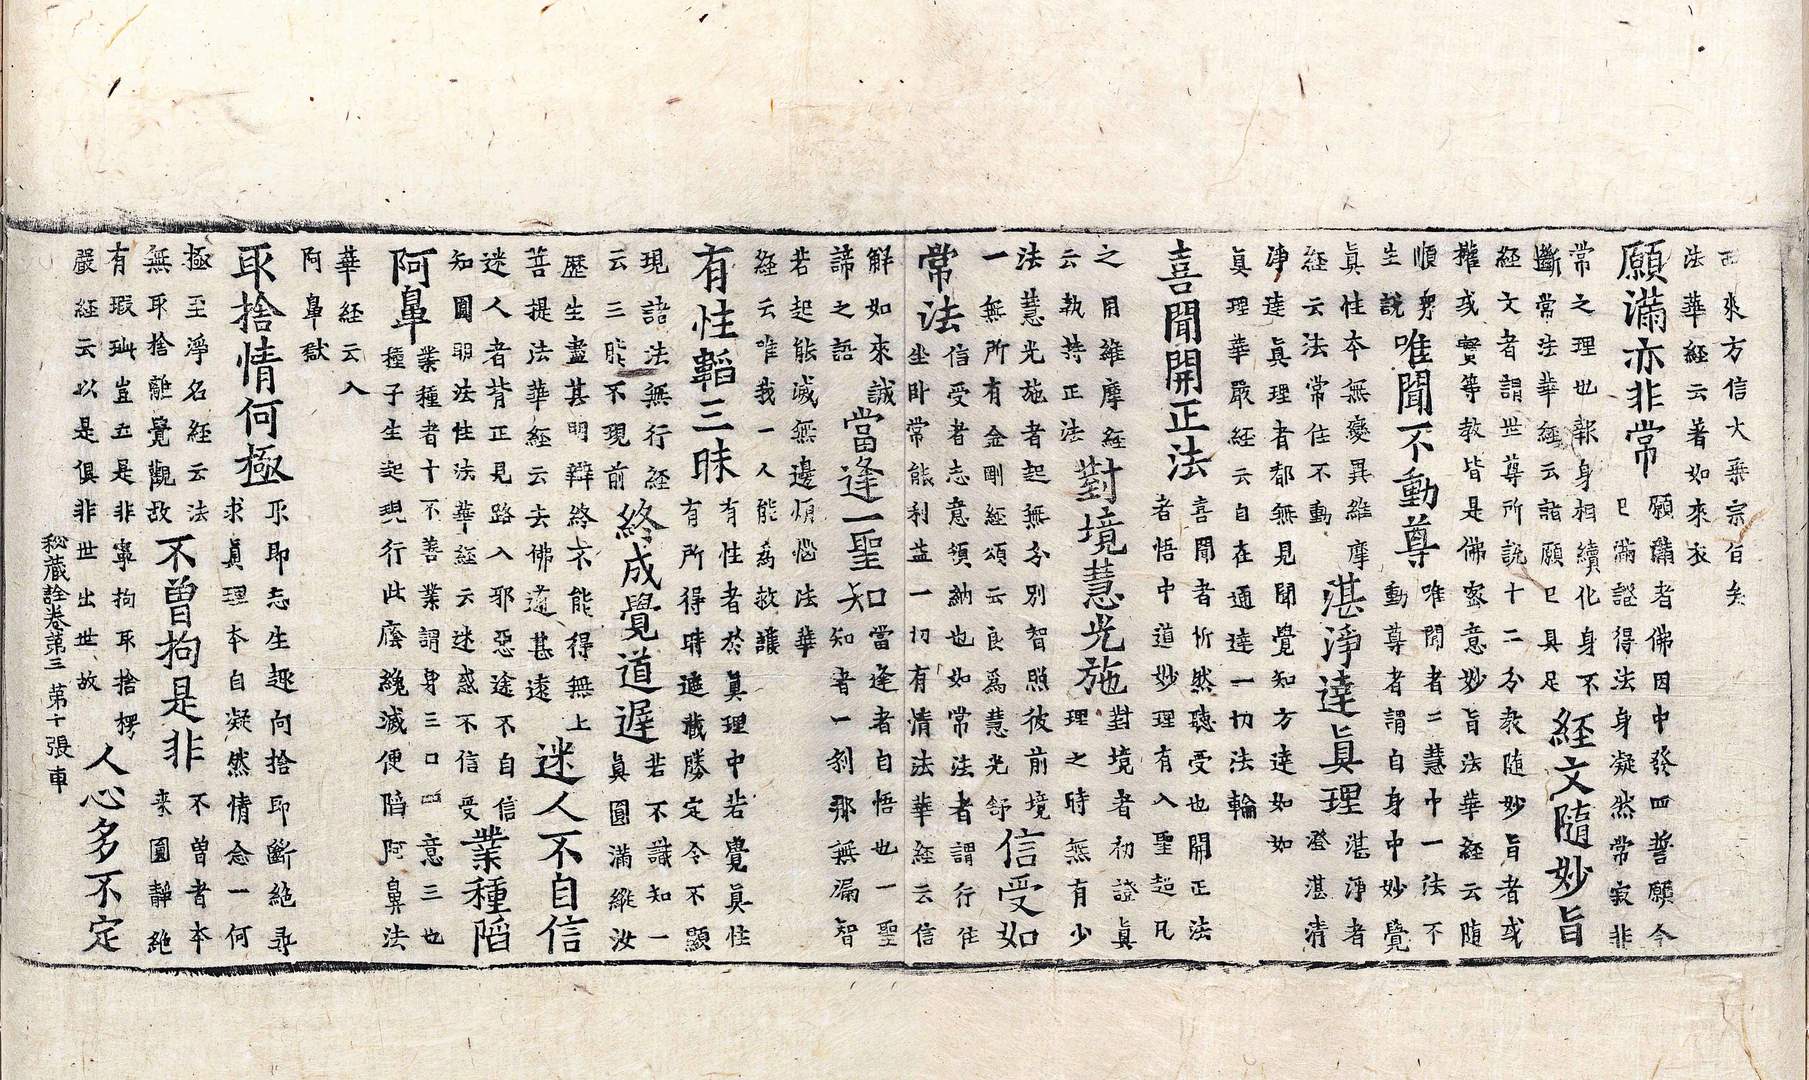 西來方信大乘宗旨矣
法華經云著如來衣
願滿亦非常
願滿者佛因中發四誓願今
已滿證得法身凝然常寂非
常之理也報身相續化身不
斷常法華經云諸願已具足
經文隨妙旨
經文者謂世尊所說十二分教隨妙旨者或
權或實等教皆是佛密意妙旨法華經云隨
順
生說
唯聞不動尊
唯聞者二慧中一法不
動尊者謂自身中妙覺
眞性本無變異維摩
經云法常住不動
湛淨達眞理
湛淨者
澄湛清
淨達眞理者都無見聞覺知方達如如
眞理華嚴經云自在通達一切法輪
喜聞開正法
喜聞者忻然聽受也開正法
者悟中道妙理有入聖超凡
之用維摩經
云執持正法
對境慧光施
對境者初證眞
理之時無有少
法慧光施者起無分別智照彼前境
一無所有金剛經頌云良爲慧光舒
信受如
常法
信受者志意領納也如常法者謂行住
坐臥常能利益一切有情法華經云信
解如來誠
諦之語
當逢一聖知
當逢者自悟也一聖
知者一刹那無漏智
若起能滅無邊煩惱法華
經云唯我一人能爲救護
有性韜三昧
有性者於眞理中若覺眞性
有所得時遮截勝定令不顯
現諸法無行經
云三昧不現前
終成覺道遲
若不識知一
眞圓滿縱汝
歷生盡甚明辯終不能得無上
菩提法華經云去佛道甚遠
迷人不自信
迷人者背正見路入邪惡途不自信
知圓明法性法華經云迷惑不信受
業種陷
阿鼻
業種者十不善業謂身三口四意三也
種子生起現行此廕纔滅便陷阿鼻法
華經云入
阿鼻獄
取捨情何極
取即志生趣向捨即斷絕尋
求眞理本自凝然情念一何
極至淨名經云法
無取捨離覺觀故
不曾拘是非
不曾者本
來圓靜絕
有瑕玼豈五是非寧拘取捨楞
嚴經云以是俱非世出世故
人心多不定
秘藏詮卷第三 第十張 車